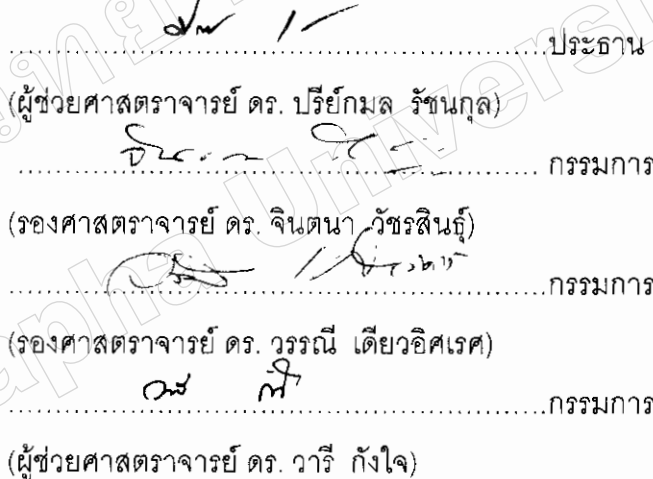 ประธาน
(ผู้ช่วยศาสตราจารย์ ดร. ปรีย์กมล รัชนกุล)
กรรมการ
(รองศาสตราจารย์ ดร. จินตนา วัชรสินธุ์)
กรรมการ
(รองศาสตราจารย์ ดร. วรรณี เดียวอิศเรศ)
กรรมการ
(ผู้ช่วยศาสตราจารย์ ดร. วารี กังใจ)